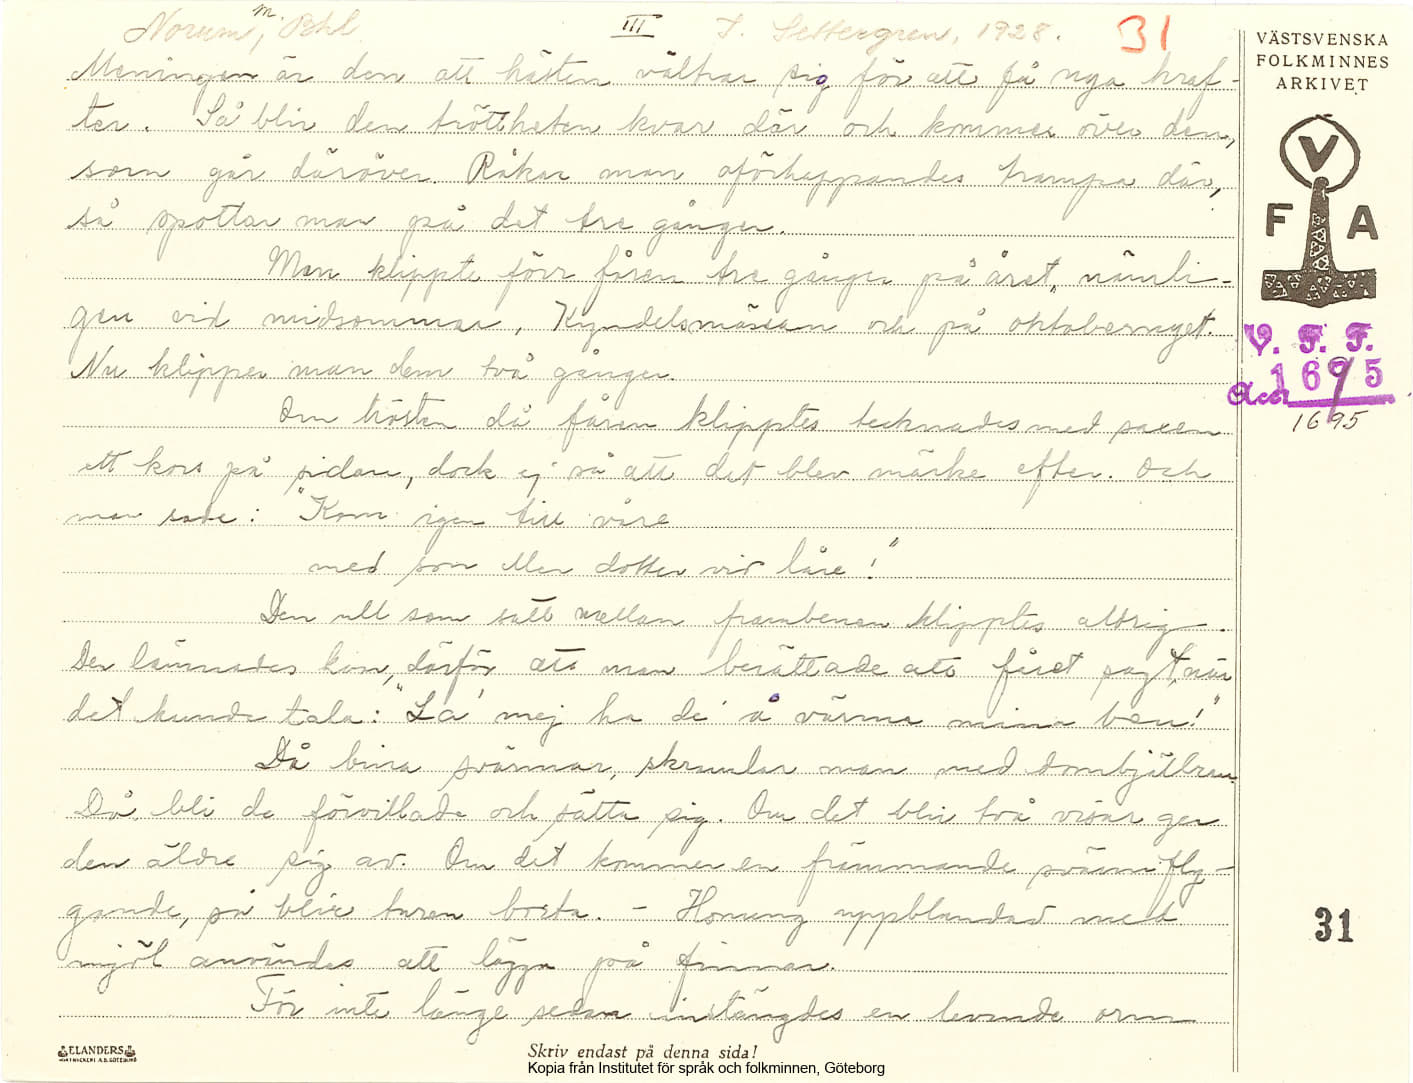 Norum, Bhl. III J. Settergren, 1928. 31
Meningen är den att hästen vältrar sig för att få nya kraf-
ter. Så blir den tröttheten kvar där och kommer över den,
som går däröver. Råkar man oförhappandes trampa där,
så spottar man på det tre gånger.
Man klippte förr fåren tre gånger på året, nämli-
gen vid midsommar, Kyndelsmässan och på oktobernyet.
Nu klipper man dem två gånger.
Om hösten då fåren klipptes tecknades med saxen
ett kors på sidan, dock ej så att det blev märke efter. Och
man sade: "Kom igen till våre
med son eller dotter vid låre!"
Den ull som satt mellan frambenen klipptes aldrig.
Den lämnades kvar, därför att man berättade att fåret sagt, när
det kunde tala: "La' mej ha de' å värma mina ben!"
Då bina svärmar, skramlar man med dombjällran.
Då bli de förvillade och sätta sig. Om det blir två visar ger
den äldre sig av. Om det kommer en främmande svärm fly-
gande, så blir turen borta. - Honung uppblandad med
mjöl användes att lägga på finnar.
För inte länge sedan instängdes en levande orm
VÄSTSVENSKA
FOLKMINNES
ARKIVET
V
F A
V. F. F.
Acc. 1695
1695
31
ELANDERS
BOKTRYCKERI A.B. GÖTEBORG
Skriv endast på denna sida!
Kopia från Institutet för språk och folkminnen, Göteborg